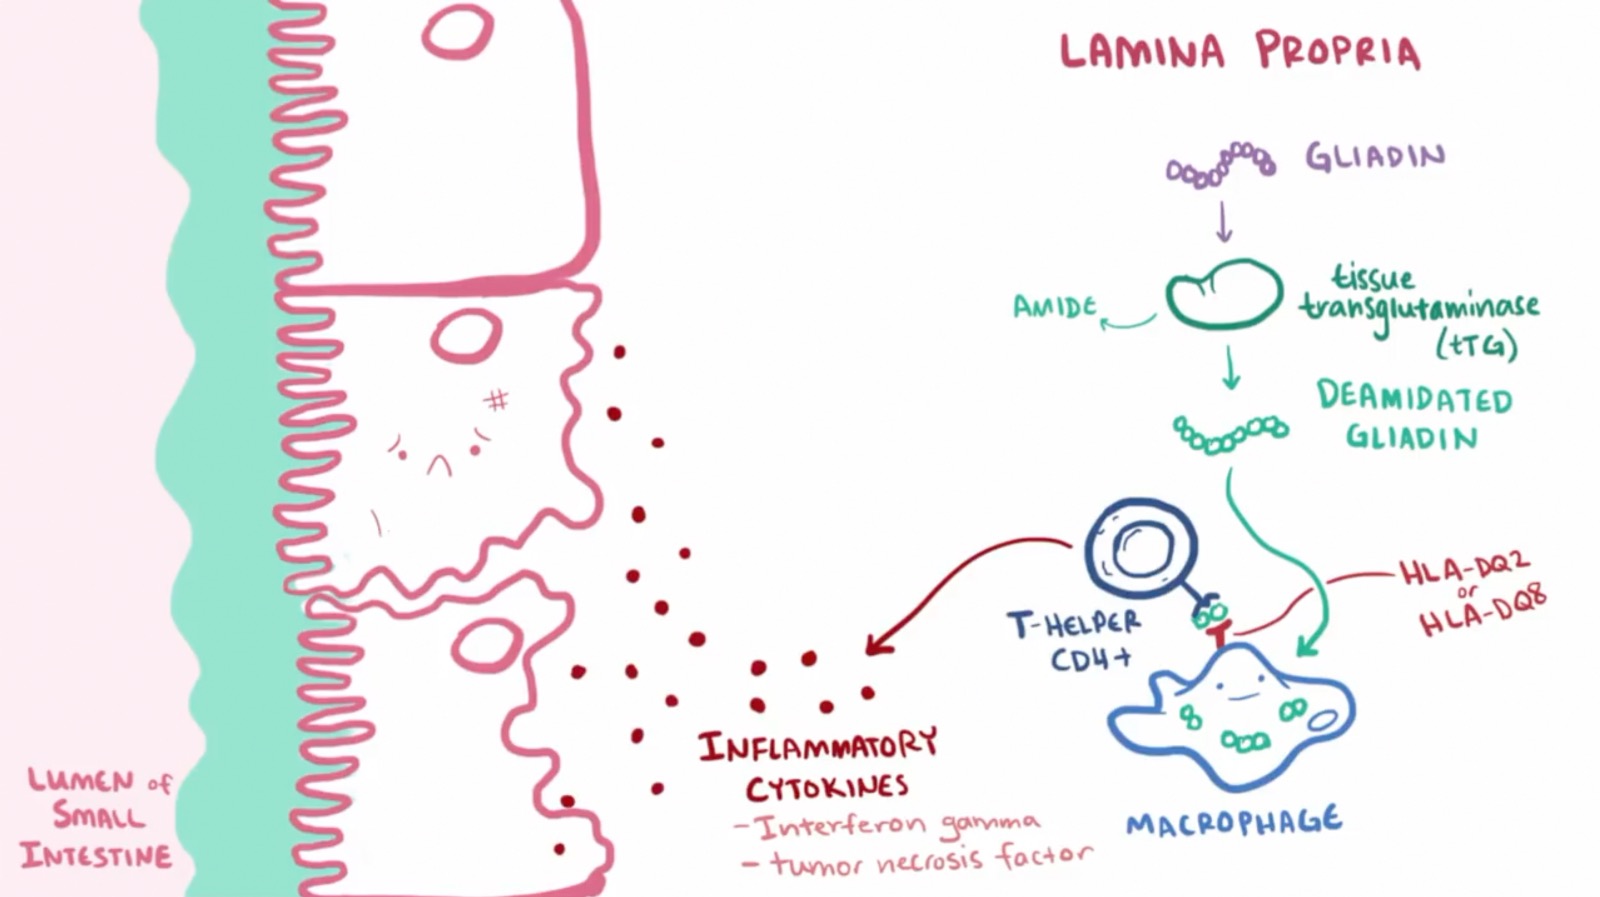 LAMINA PROPRIA
GLIADIN
AMIDE
tissue
transglutaminase
(tTG)
DEAMIDATED
GLIADIN
HLA-DQ2
or
HLA-DQ8
T-HELPER
CD4+
MACROPHAGE
INFLAMMATORY
CYTOKINES
- Interferon gamma
- tumor necrosis factor
LUMEN of
SMALL
INTESTINE